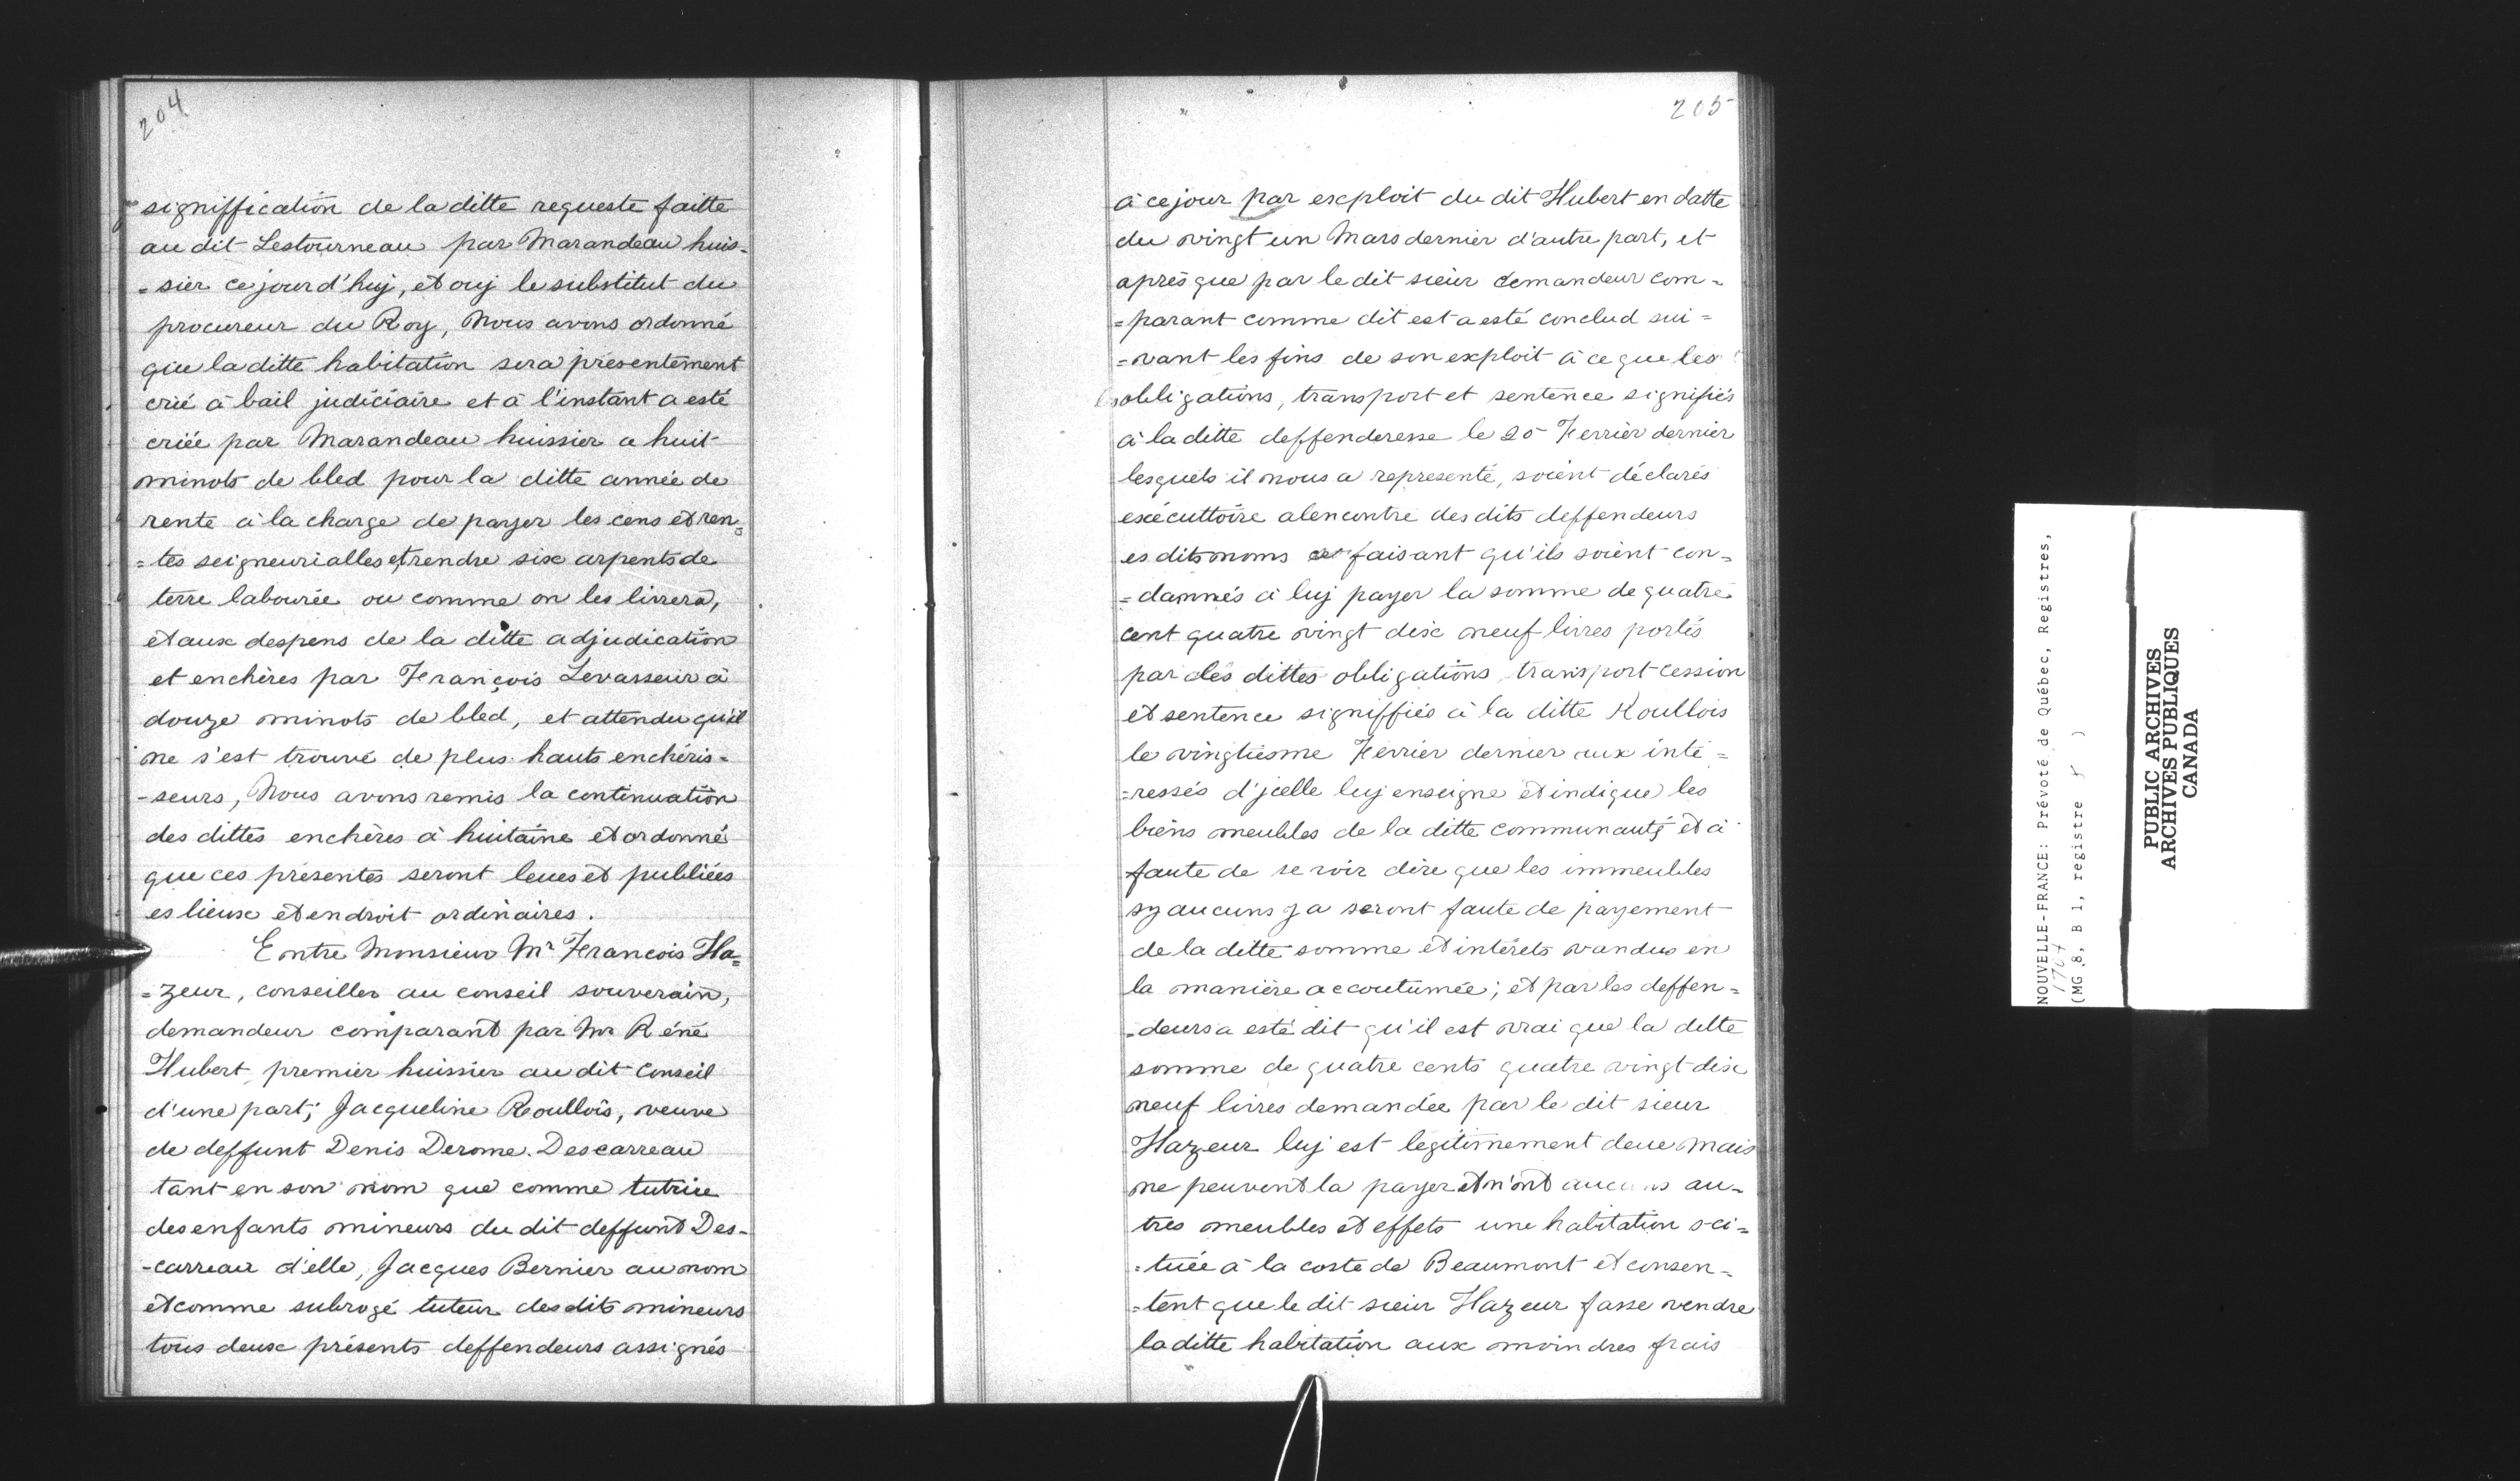 204
signiffication de la ditte requeste faitte
au dit Lestourneau par Marandeau huis-
=sier ce jourd'huy, et ouy le substitut du
procureur du Roy, Nous avons ordonné
que la ditte habitation sera présentement
crié à bail judiciaire et à l'instant a esté
criée par Marandeau huissier a huit
minots de bled pour la ditte année de
rente à la charge de payer les cens et ren=
=tes seigneurialles et rendre six arpents de
terre labourée ou comme on les livrera,
et aux despens de la ditte adjudication
et enchères par François Levasseur à
douze minots de bled, et attendu qu'il
ne s'est trouvé de plus hauts enchéris=
-seurs, Nous avons remis la continuation
des dittes enchères à huitaine et ordonné
que ces présentes seront leues et publiées
es lieux et endroit ordinaires.
Entre Monsieur Mr François Ha=
=zeur, conseiller au conseil souverain,
demandeur comparant par Mr Réné
Hubert, premier huissier au dit Conseil
d'une part; Jacqueline Roullois, veuve
de deffunt Denis Derome. Descarreau
tant en son nom que comme tutrice
des enfants mineurs du dit deffunt Des-
-carreau d'elle, Jacques Bernier au nom
et comme subrogé tuteur des dits mineurs
tous deux présents deffendeurs assignés
205
à ce jour par exploit du dit Hubert en datte
du vingt un Mars dernier d'autre part, et
après que par le dit sieur demandeur com=
=parant comme dit est a esté conclud sui=
=vant les fins de son exploit à ce que les
obligations, transport et sentence signifiés
à la ditte deffenderesse le 20 Fevrier dernier
lesquels il nous a representé, soient déclarés
exécuttoire alencontre des dits deffendeurs
es dits noms faisant qu'ils soient con=
=damnés à luy payer la somme de quatre
cent quatre vingt dix neuf livres portés
par les dittes obligations, transport cession
et sentence signiffiés à la ditte Roullois
le vingtiesme Fevrier dernier aux inté=
=ressés d'jcelle luy enseigne et indique les
biens meubles de la ditte communauté et à
faute de se voir dire que les immeubles
sy aucuns y a seront faute de payement
de la ditte somme et intérets vandus en
la manière accoutumée; et par les deffen=
=deurs a esté dit qu'il est vrai que la ditte
somme de quatre cents quatre vingt dix
neuf livres demandée par le dit sieur
Hazeur luy est légitimement deue mais
ne peuvent la payer et n'ont aucuns au=
tres meubles et effets une habitation sci=
=tuée à la coste de Beaumont et consen=
=tent que le dit sieur Hazeur fasse vendre
la ditte habitation aux moindres frais
NOUVELLE-FRANCE: Prévoté de Québec, Registres,
1707
(MG 8, B 1, registre )
PUBLIC ARCHIVES
ARCHIVES PUBLIQUES
CANADA